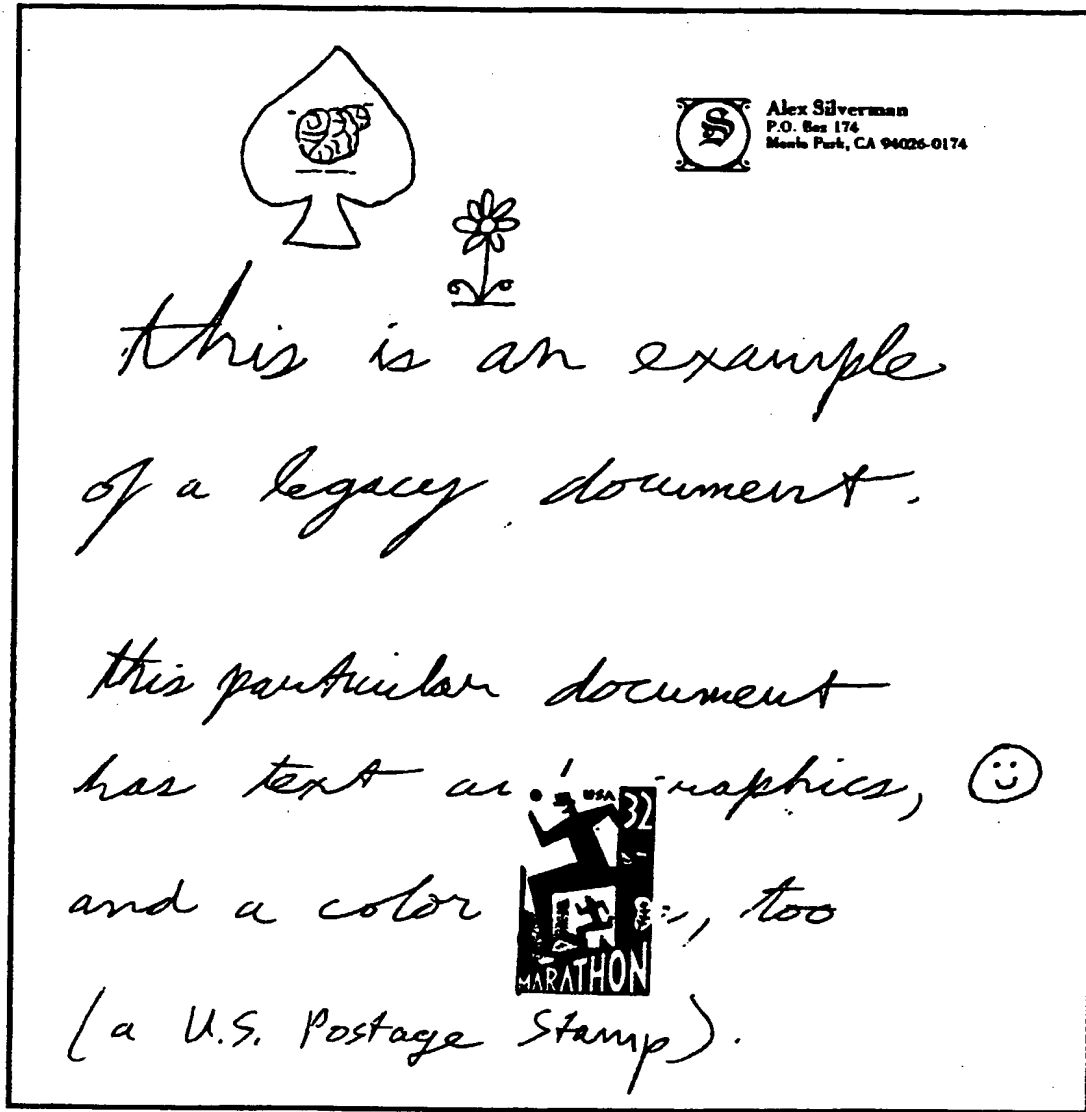 S
Alex Silverman
P.O. Box 174
Menlo Park, CA 94026-0174
this is an example
of a legacy document.
this particular document
has text an raphics,
USA 32
and a color , too
MARATHON
(a U.S. Postage Stamp).